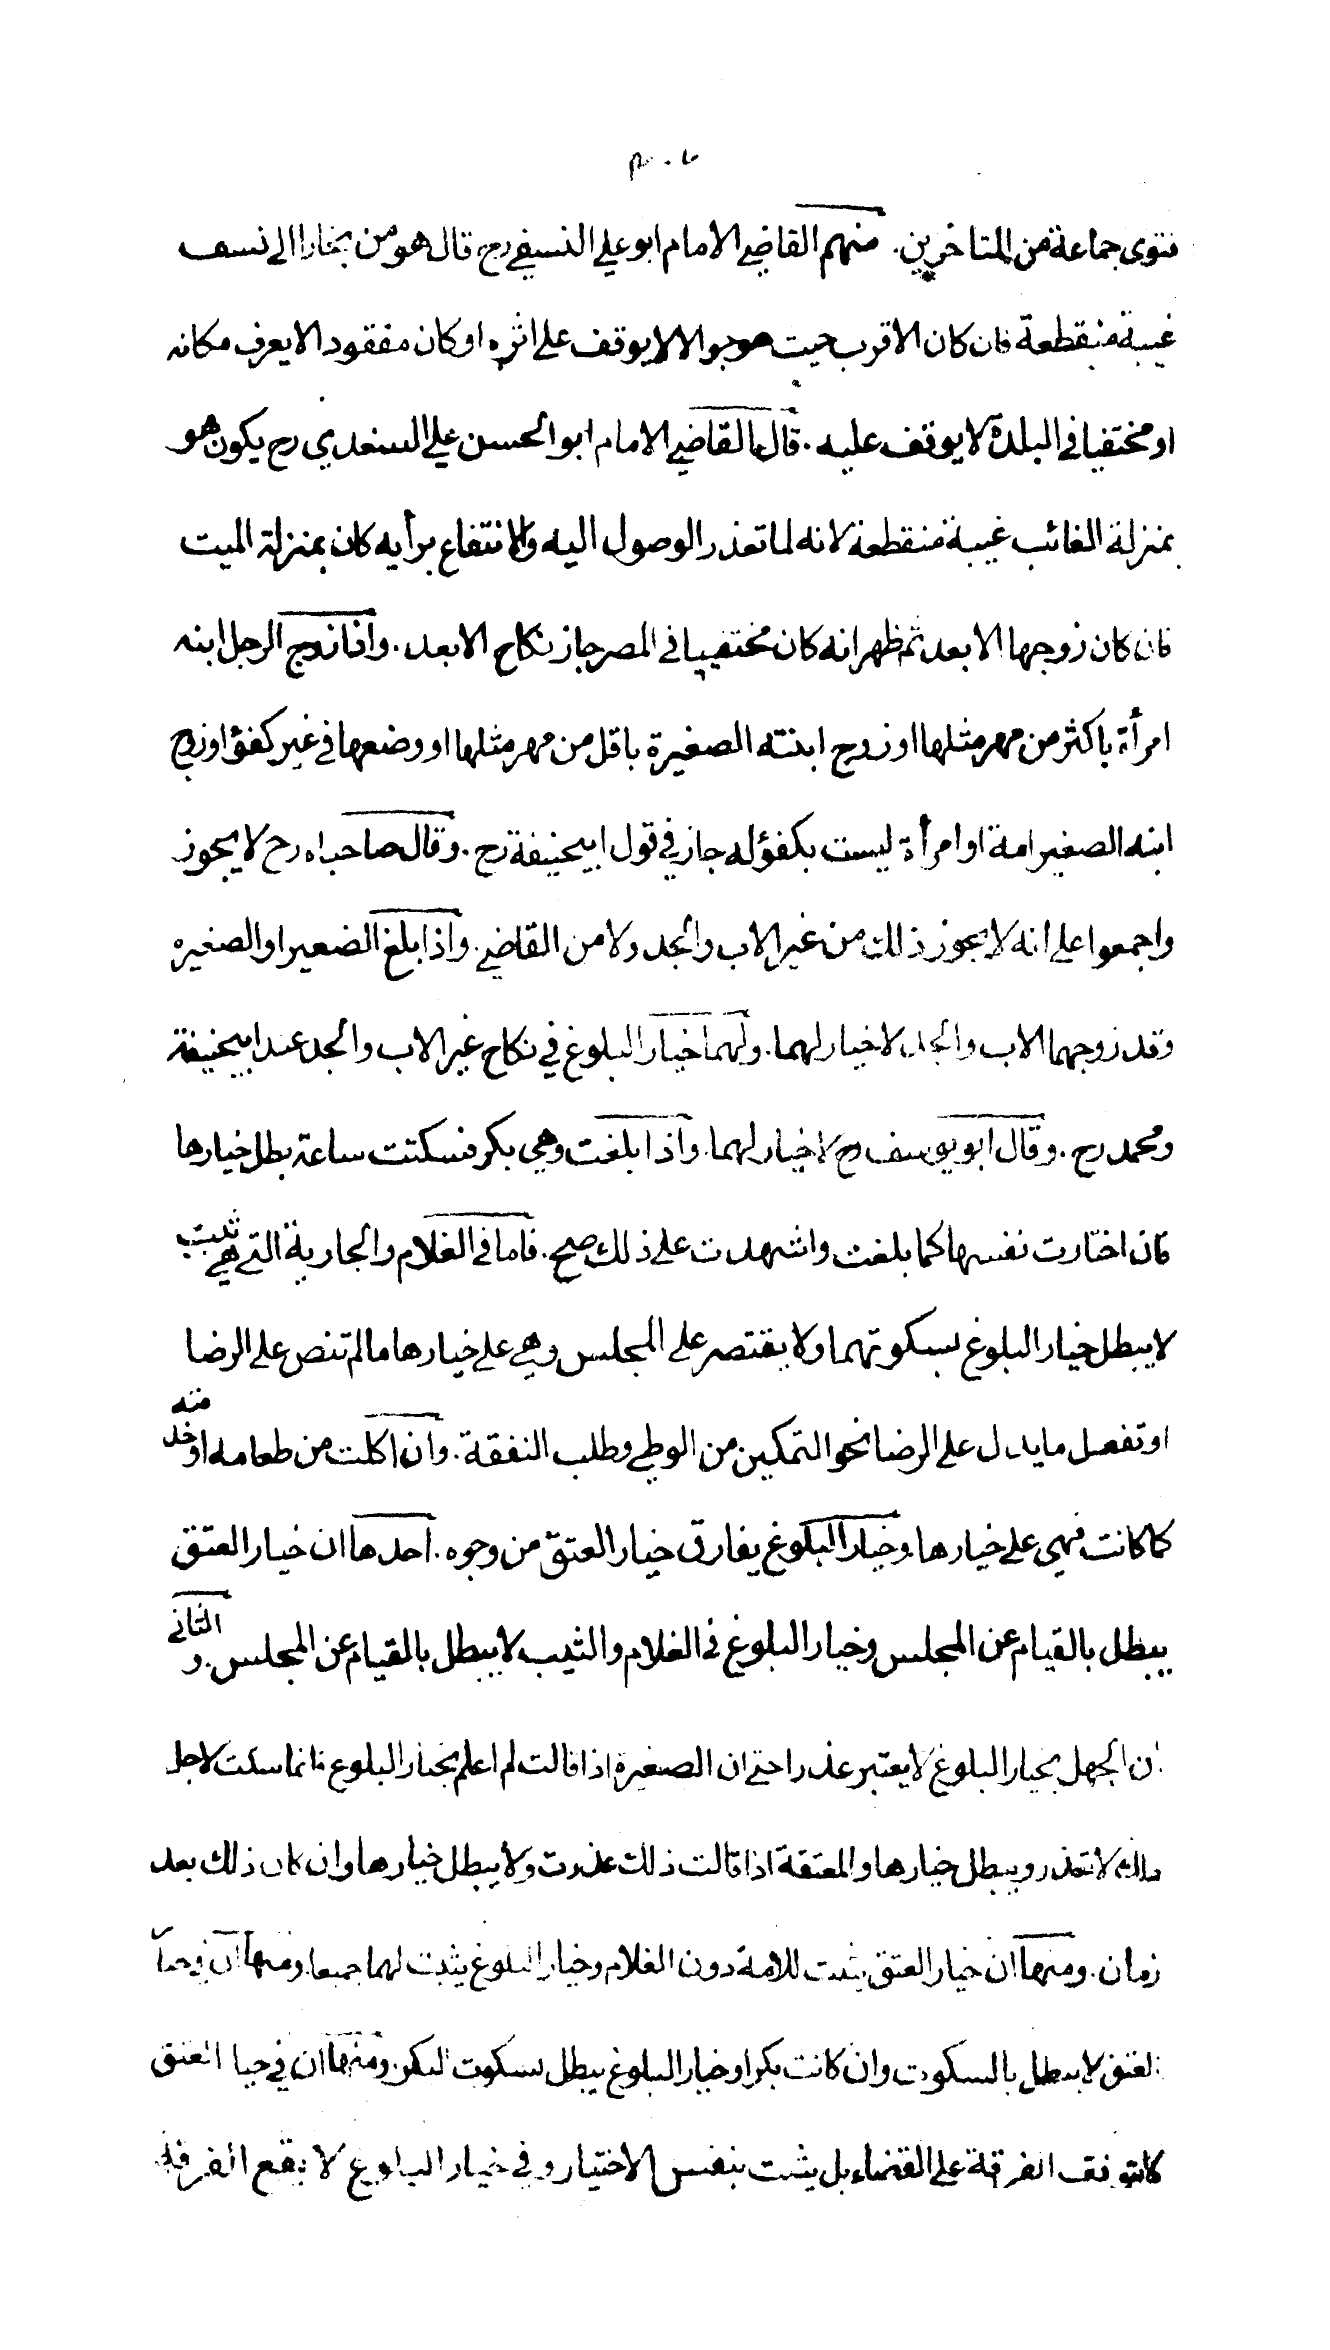 فتوى جماعة من المتاخرين. منهم القاضي الامام ابو علي النسفي رح قال هو من بخارا الى نسف
غيبة منقطعة فان كان الاقرب حيث هو جوالا لا يوقف على اثره او كان مفقودا لا يعرف مكانه
او مختفيا في البلدة لا يوقف عليه. قال القاضي الامام ابو الحسن علي السغدي رح يكون هو
بمنزلة الغائب غيبة منقطعة لانه لما تعذر الوصول اليه والانتفاع برأيه كان بمنزلة الميت
فان كان زوجها الابعد ثم ظهر انه كان مختفيا في المصر جاز نكاح الابعد. واذا زوج الرجل ابنه
امرأة باكثر من مهر مثلها او زوج ابنته الصغيرة باقل من مهر مثلها او وضعها في غير كفؤ او زوج
ابنه الصغير امة او امرأة ليست بكفؤ له جاز في قول ابيحنيفة رح. وقال صاحباه رح لا يجوز
واجمعوا على انه لا يجوز ذلك من غير الاب والجد ولا من القاضي. واذا بلغ الضعير او الصغيره
وقد زوجهما الاب والجد لا خيار لهما. ولهما خيار البلوغ في نكاح غير الاب والجد عند ابيحنيفة
ومحمد رح. وقال ابو يوسف رح لا خيار لهما. واذا بلغت وهي بكر فسكتت ساعة بطل خيارها
فان اختارت نفسها كما بلغت واشهدت على ذلك صح. فاما في الغلام والجارية التي هي ثيب
لا يبطل خيار البلوغ بسكوتهما ولا يقتصر على المجلس وهي على خيارها ما لم تنص على الرضا
او تفعل ما يدل على الرضا نحو التمكين من الوطي وطلب النفقة. وان اكلت من طعامه او خد منه
كما كانت فهي على خيارها. وخيار البلوغ يفارق خيار العتق من وجوه. احدها ان خيار العتق
يبطل بالقيام عن المجلس وخيار البلوغ في الغلام والثيب لا يبطل بالقيام عن المجلس. و الثاني
ان الجهل بخيار البلوغ لا يعتبر عذرا حتى ان الصغيرة اذا قالت لم اعلم بخيار البلوغ فانما سكت لاجل
ذلك لا تعذر ويبطل خيارها والمعتقة اذا قالت ذلك عذرت ولا يبطل خيارها وان كان ذلك بعد
زمان. ومنها ان خيار العتق يثبت للامة دون الغلام وخيار البلوغ يثبت لهما جميعا. ومنها ان خيار
العتق لا يبطل بالسكوت وان كانت بكرا وخيار البلوغ يبطل بسكوت البكر. ومنها ان في خيا العتق
لا يتوقف الفرقة على القضاء بل يثبت بنفس الاختيار وفي خيار البلوغ لا يقع الفرقة